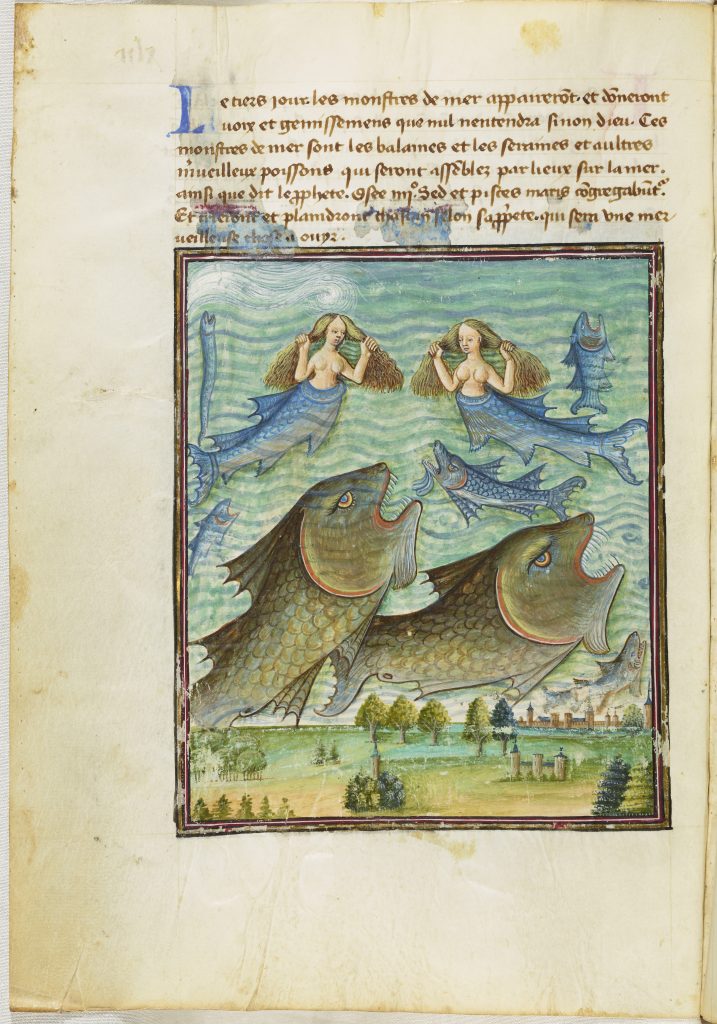 Le tiers jour. les monstres de mer apparerōt. et dōneront
voix et gemissemens que nul nentendra sinon dieu. Ces
monstres de mer sont les balaines et les seraines et aultres
m̄veilleux poissons qui seront assēblez par lieux sur la mer.
ainsi que dit le ꝓphete. Osee iiiiº. Sed et pisces maris cōgregabūtᵒ.
Et et plaindront chascun selon sa ꝓp̄ete. qui sera vne mer
veilleuse chose a ouyr.